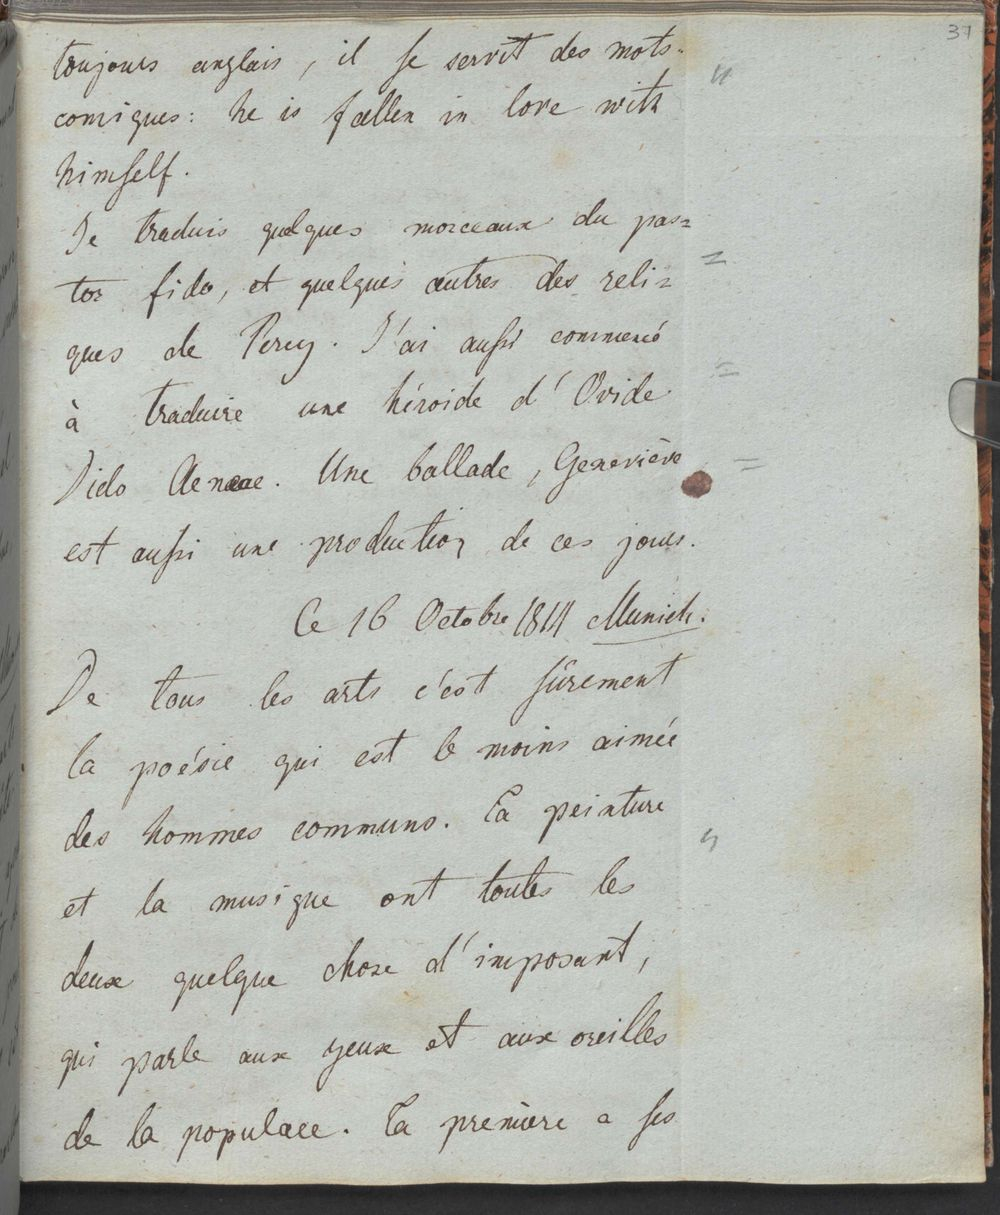 37
toujours anglais, il se servit des mots
comiques: he is fallen in love with
himself.
Je traduis quelques morceaux du pas=
tor fido, et quelques autres des reli=
ques de Percy. J'ai aussi commencé
à traduire une héroide d'Ovide
Dido Aeneae. Une ballade, Geneviève
est aussi une production de ces jours.
Ce 16 Octobre 1814 Munich.
De tous les arts c'est sûrement
la poésie qui est le moins aimée
des hommes communs. La peinture
et la musique ont toutes les
deux quelque chose d'imposant,
qui parle aux yeux et aux oreilles
de la populace. La première a ses